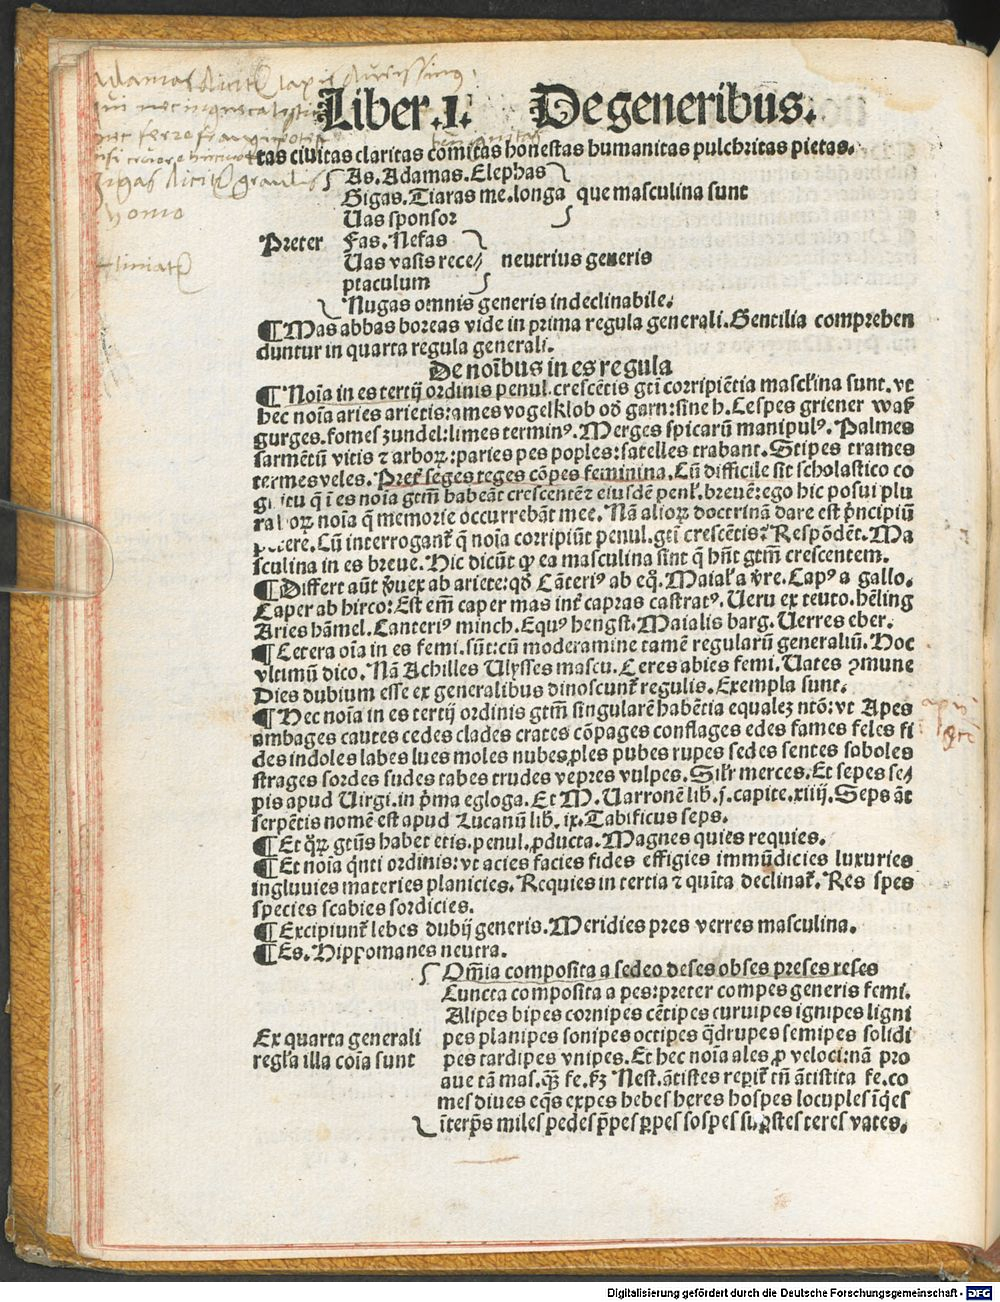 Liber .1. De generibus.
tas ciuitas claritas comitas honestas humanitas pulchritas pietas.
As. Adamas. Elephas
Gigas. Tiaras me. longa que masculina sunt
Uas sponsor
Preter Fas. Nefas
Uas vasis rece⸗ neutrius generis
ptaculum
Nugas omnis generis indeclinabile.
¶ Mas abbas boreas vide in prima regula generali. Gentilia comprehen
duntur in quarta regula generali.
De noib̄us in es regula
¶ Noīa in es tertij ordinis penul. crescētis gtī corripiētia mascl̄ina sunt. vt
hec noīa aries arietis: ames vogelklob od̄ garn: sine h. Cespes griener waſz
gurges. fomes zundel: limes terminꝰ. Merges spicarū manipulꝰ. Palmes
sarmētū vitis ⁊ arboꝝ: paries pes poples: satelles trabant. Stipes trames
termes veles. Pret̄ seges teges cōpes feminina. Cū difficile sit scholastico co
tu q̄ ī es noīa gtm̄ habeāt crescentē ⁊ eiusdē penl̄. breuē: ego hic posui plu
noīa q̄ memorie occurrebāt mee. Nā alioꝝ doctrinā dare est p̄ncipiū
Cū interrogant̄ q̄ noīa corripiūt penul. gtī crescētis? Respōdēt. Ma
sculina in es breue. Hic dicūt ꝙ ea masculina sint q̄ hn̄t gtm̄ crescentem.
¶ Differt aūt ab ariete: qd̄ Cāteriꝰ ab eq̄. Maial̄ a v̄re. Capꝰ a gallo.
Caper ab hirco: Est em̄ caper mas int̄ capras castratꝰ. Ueru ex teuto. hēling
Aries hāmel. Canteriꝰ minch. Equꝰ hengst. Maialis barg. Uerres eber.
¶ Cetera oīa in es femi. sūt: cū moderamine tamē regularū generaliū. Hoc
vltimū dico. Nā Achilles Ulysses mascu. Ceres abies femi. Uates ꝯmune
Dies dubium esse ex generalibus dinoscunt̄ regulis. Exempla sunt.
¶ Hec noīa in es tertij ordinis gtm̄ singularē habētia equalez ntō: vt Apes
ambages cautes cedes clades crates cōpages conflages edes fames feles fi
des indoles labes lues moles nubes ples pubes rupes sedes sentes soboles
strages sordes sudes tabes trudes vepres vulpes. Sil̄r merces. Et sepes se⸗
pis apud Uirgi. in p̄ma egloga. Et M. Uarronē lib̄. j. capite. xiiij. Seps āt
serpētis nomē est apud Lucanū lib̄. ix. Tabificus seps.
¶ Et q̄ꝝ gtūs habet etis. penul. ꝓducta. Magnes quies requies.
¶ Et noīa q̄nti ordinis: vt acies facies fides effigies immūdicies luxuries
ingluuies materies planicies. Requies in tertia ⁊ quīta declinat̄. Res spes
species scabies sordicies.
¶ Excipiunt̄ lebes dubij generis. Meridies pres verres masculina.
¶ Es. Hippomanes neutra.
Om̄ia composita a sedeo deses obses preses reses
Cuncta composita a pes: preter compes generis femi.
Alipes bipes cornipes cētipes curuipes ignipes ligni
Ex quarta generali pes planipes sonipes octipes q̄drupes semipes solidi
regl̄a illa coīa sunt pes tardipes vnipes. Et hec noīa ales ꝓ veloci: nā pro
aue tā mas. qꝫ fe. Nest. ātistes repit̄ tn̄ ātistita fe. co
mes diues eq̄s expes hebes heres hospes locuples īq̄es
īterp̄s miles pedes p̄pes ꝑpes sospes sūꝑstes teres vates.
Digitalisierung gefördert durch die Deutsche Forschungsgemeinschaft - DFG